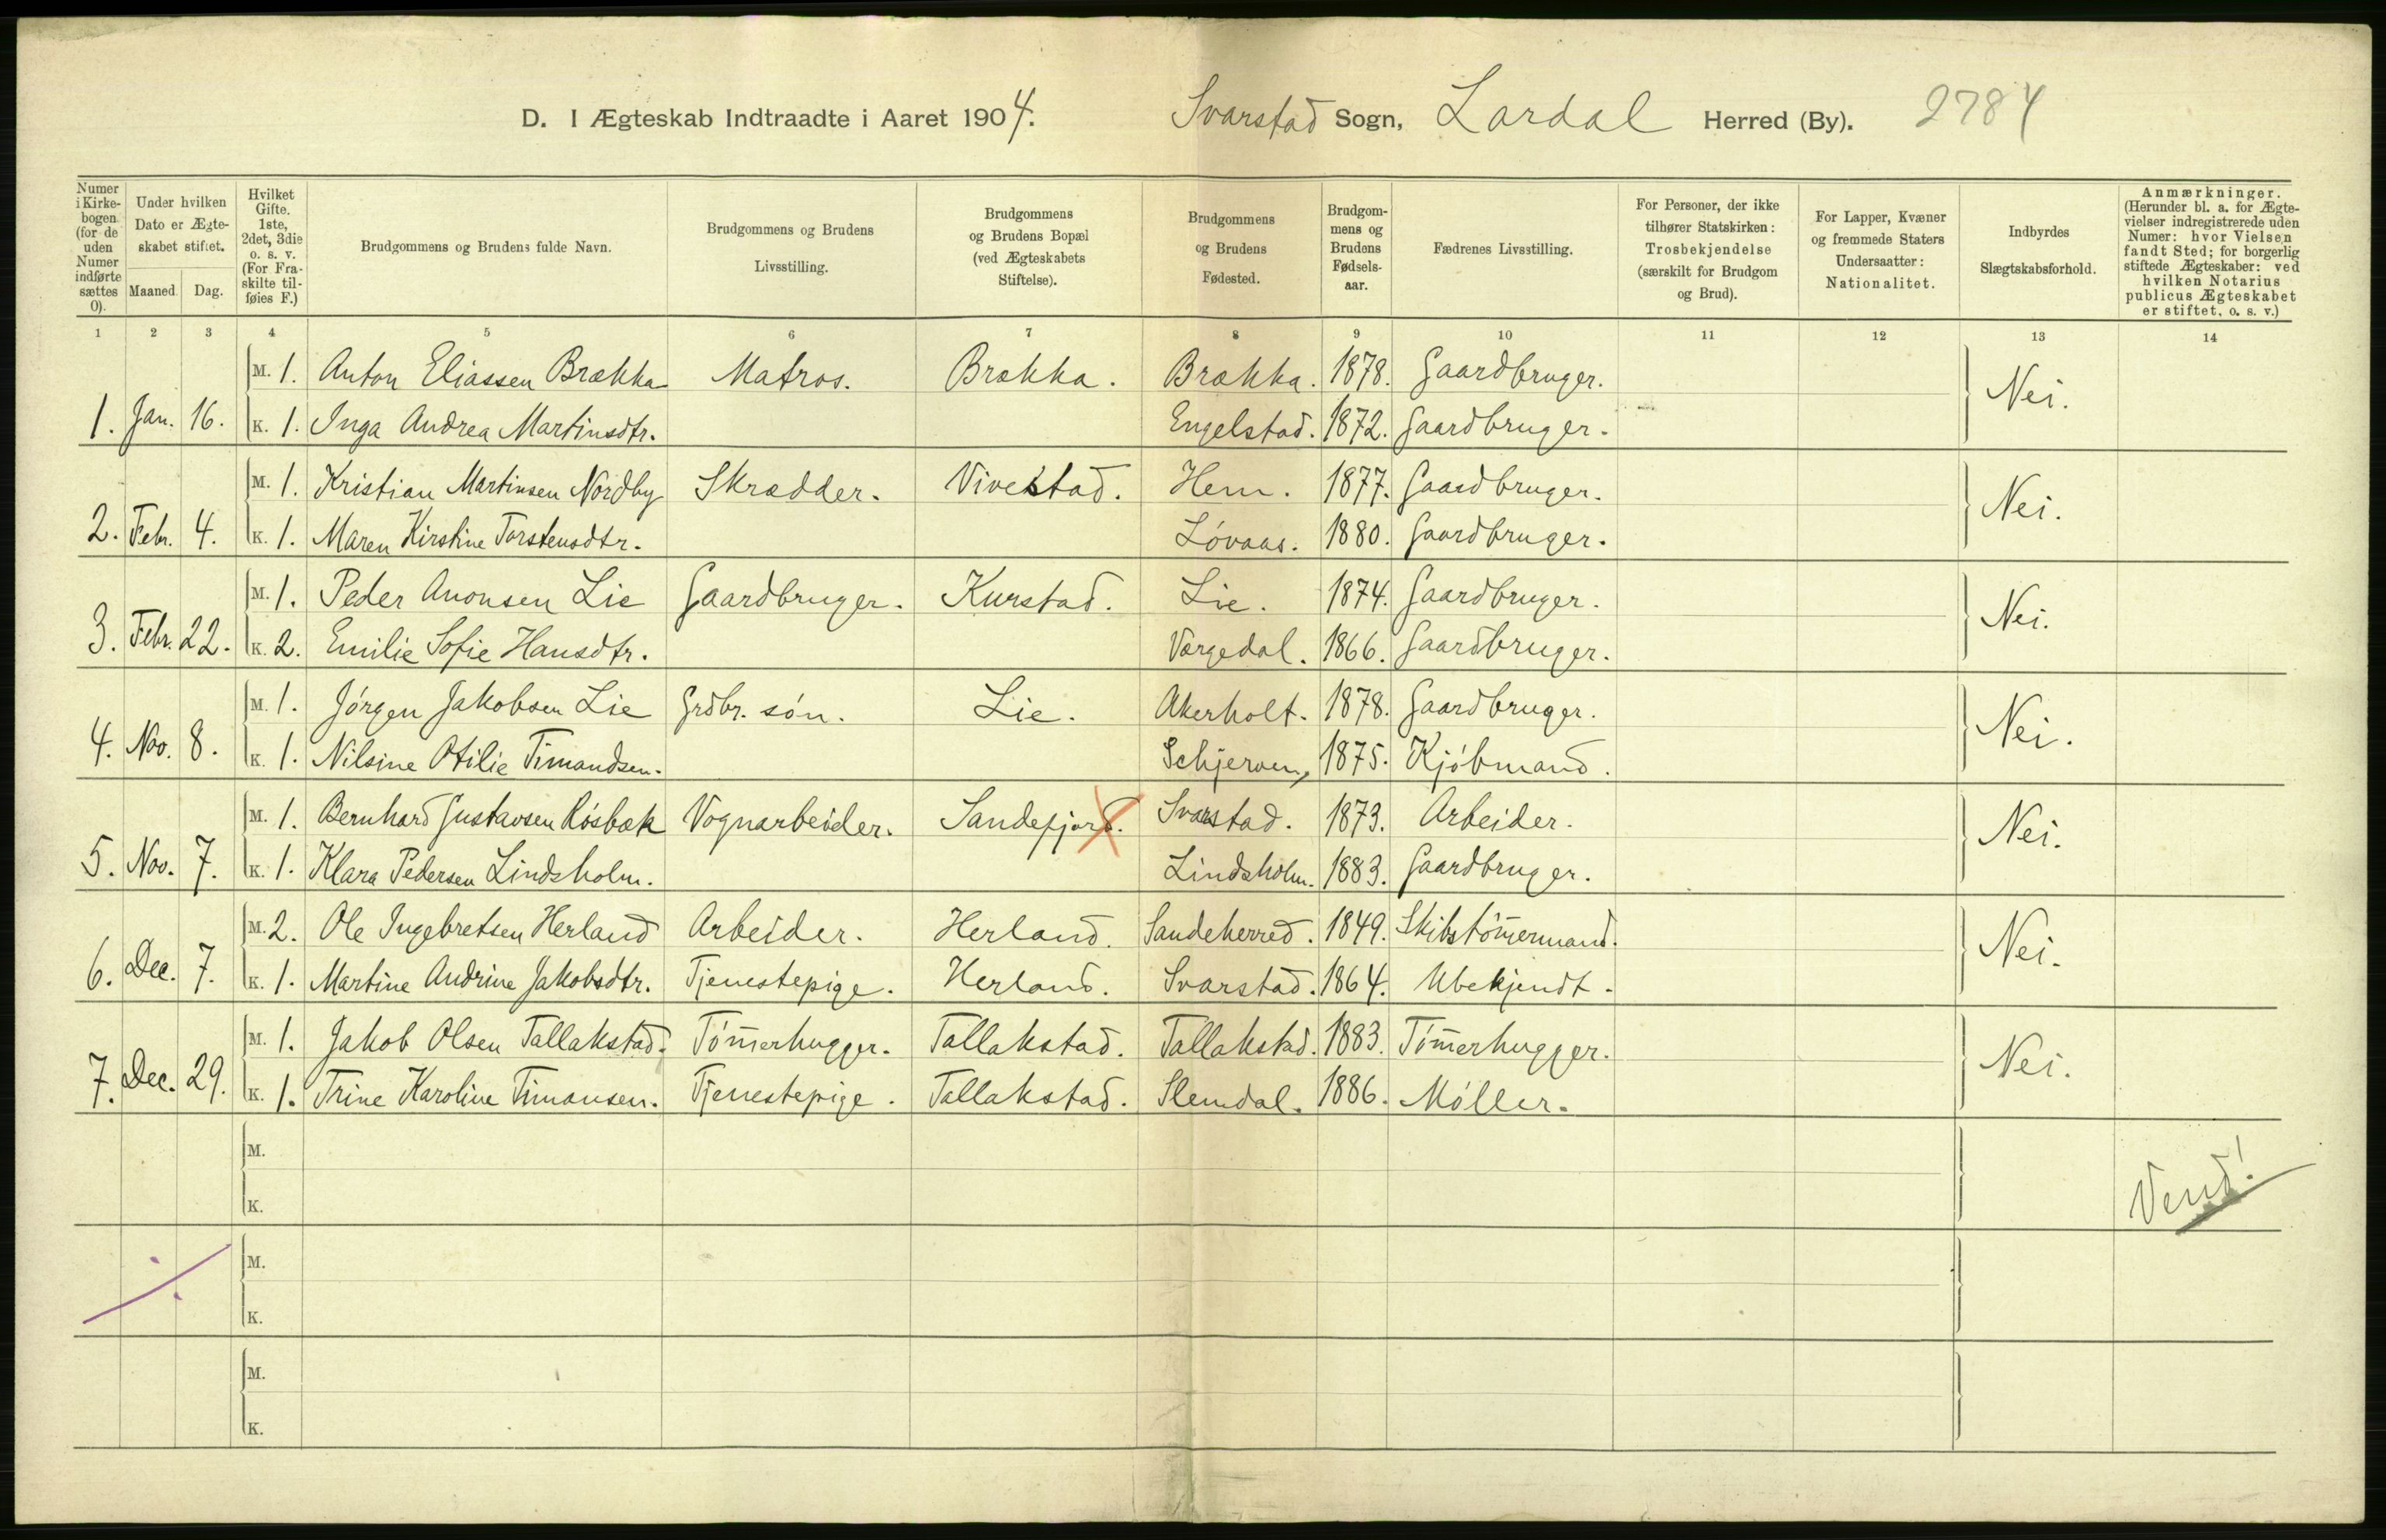 D. I Ægteskab Indtraadte i Aaret 1904. Svarstad Sogn, Lardal Herred (By). 2784
Numer i Kirkebogen (for de uden Numer indførte sættes 0).
Under hvilken Dato er Ægteskabet stiftet.
Maaned. Dag.
Hvilket Gifte. 1ste, 2det, 3die o. s. v. (For Fraskilte tilføies F.)
Brudgommens og Brudens fulde Navn.
Brudgommens og Brudens Livsstilling.
Brudgommens og Brudens Bopæl (ved Ægteskabets Stiftelse).
Brudgommens og Brudens Fødested.
Brudgommens og Brudens Fødselsaar.
Fædrenes Livsstilling.
For Personer, der ikke tilhører Statskirken: Trosbekjendelse (særskilt for Brudgom og Brud).
For Lapper, Kvæner og fremmede Staters Undersaatter: Nationalitet.
Indbyrdes Slægtskabsforhold.
Anmærkninger. (Herunder bl. a. for Ægtevielser indregistrerede uden Numer: hvor Vielsen fandt Sted; for borgerlig stiftede Ægteskaber: ved hvilken Notarius publicus Ægteskabet er stiftet, o. s. v.)
1 2 3 4 5 6 7 8 9 10 11 12 13 14
M. 1. Anton Eliassen Brække Matros. Brækka. Brækka. 1878. Gaardbruger. Nei.
1. Jan. 16. K. 1. Inga Andrea Martinsdtr. Engelstad. 1872. Gaardbruger.
M. 1. Kristian Martinsen Nordby Skrædder. Vivestad. Hem. 1877. Gaardbruger. Nei.
2. Febr. 4. K. 1. Maren Kirstine Torstensdtr. Løvaas. 1880. Gaardbruger.
M. 1. Peder Anonsen Lie Gaardbruger. Kurstad. Lie. 1874. Gaardbruger. Nei.
3. Febr. 22. K. 2. Emilie Sofie Hansdtr. Vargedal. 1866. Gaardbruger.
M. 1. Jørgen Jakobsen Lie Grdbr. søn. Lie. Akerholt. 1878. Gaardbruger. Nei.
4. Nov. 8. K. 1. Nilsine Otilie Timandsen. Schjerven, 1875. Kjøbmand.
M. 1. Bernhard Gustavsen Røsbæk Vognarbeider. Sandefjord. Svarstad. 1873. Arbeider. Nei.
5. Nov. 7. K. 1. Klara Pedersen Lindsholm. Lindsholm. 1883. Gaardbruger.
M. 2. Ole Ingebretsen Herland Arbeider. Herland. Sandeherred. 1849. Skibstøm̄ermand. Nei.
6. Dec. 7. K. 1. Martine Andrine Jakobsdtr. Tjenestepige. Herland. Svarstad. 1864. Ubekjendt.
M. 1. Jakob Olsen Tallakstad. Tøm̄erhugger. Tallakstad. Tallakstad. 1883. Tøm̄erhugger. Nei.
7. Dec. 29. K. 1. Trine Karoline Timansen. Tjenestepige. Tallakstad. Slemdal. 1886. Møller.
M.
K.
Vend!
M.
K.
M.
K.